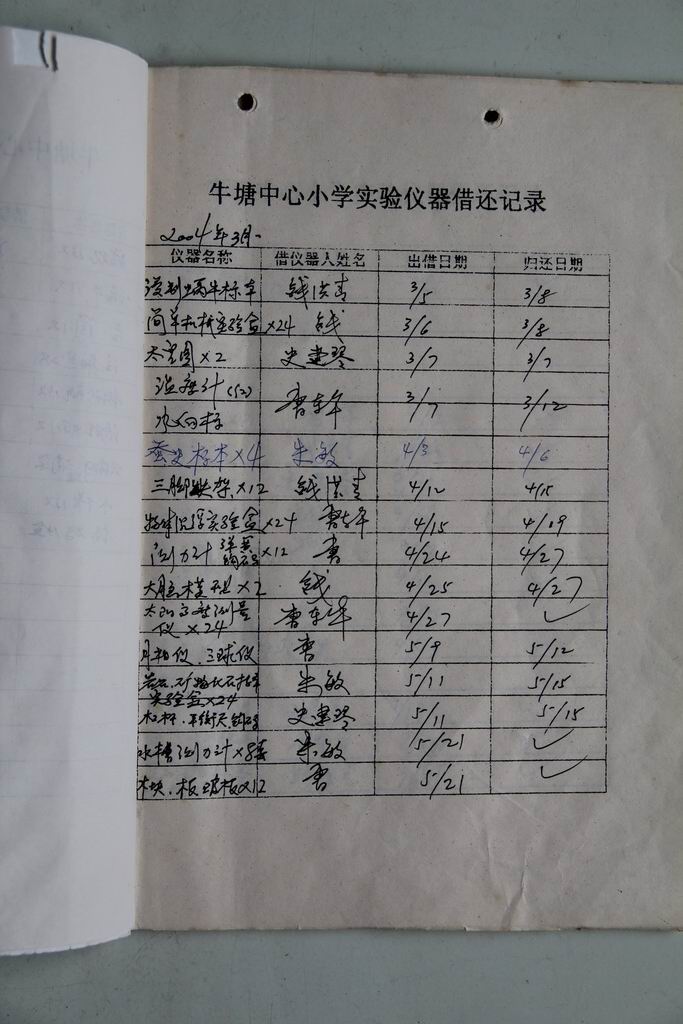 牛塘中心小学实验仪器借还记录
2004年3月
仪器名称 借仪器人姓名 出借日期 归还日期
蜗牛标本 钱洪青 3/5 3/8
简单机械实验盒×24 钱 3/6 3/8
×2 史建琴 3/7 3/7
温度计(52)
曹东年 3/7 3/12
风向标
蚕 标本×4 朱敏 4/3 4/6
三脚架×12 钱洪青 4/12 4/15
物体沉浮实验盒×24 4/15 4/19
测力计 弹簧 ×12 曹 4/24 4/27
钩码
大脑模型×2 钱 4/25 4/27
太阳高度测量
仪×24 曹东年 4/27 ✓
月相仪、三球仪 曹 5/9 5/12
岩石、矿物化石标本 朱敏 5/11 5/15
实验盒×24
杠杆、平衡 史建琴 5/11 5/15
水槽 测力计×8套 朱敏 5/21 ✓
木块、板 玻板×12 曹 5/21 ✓